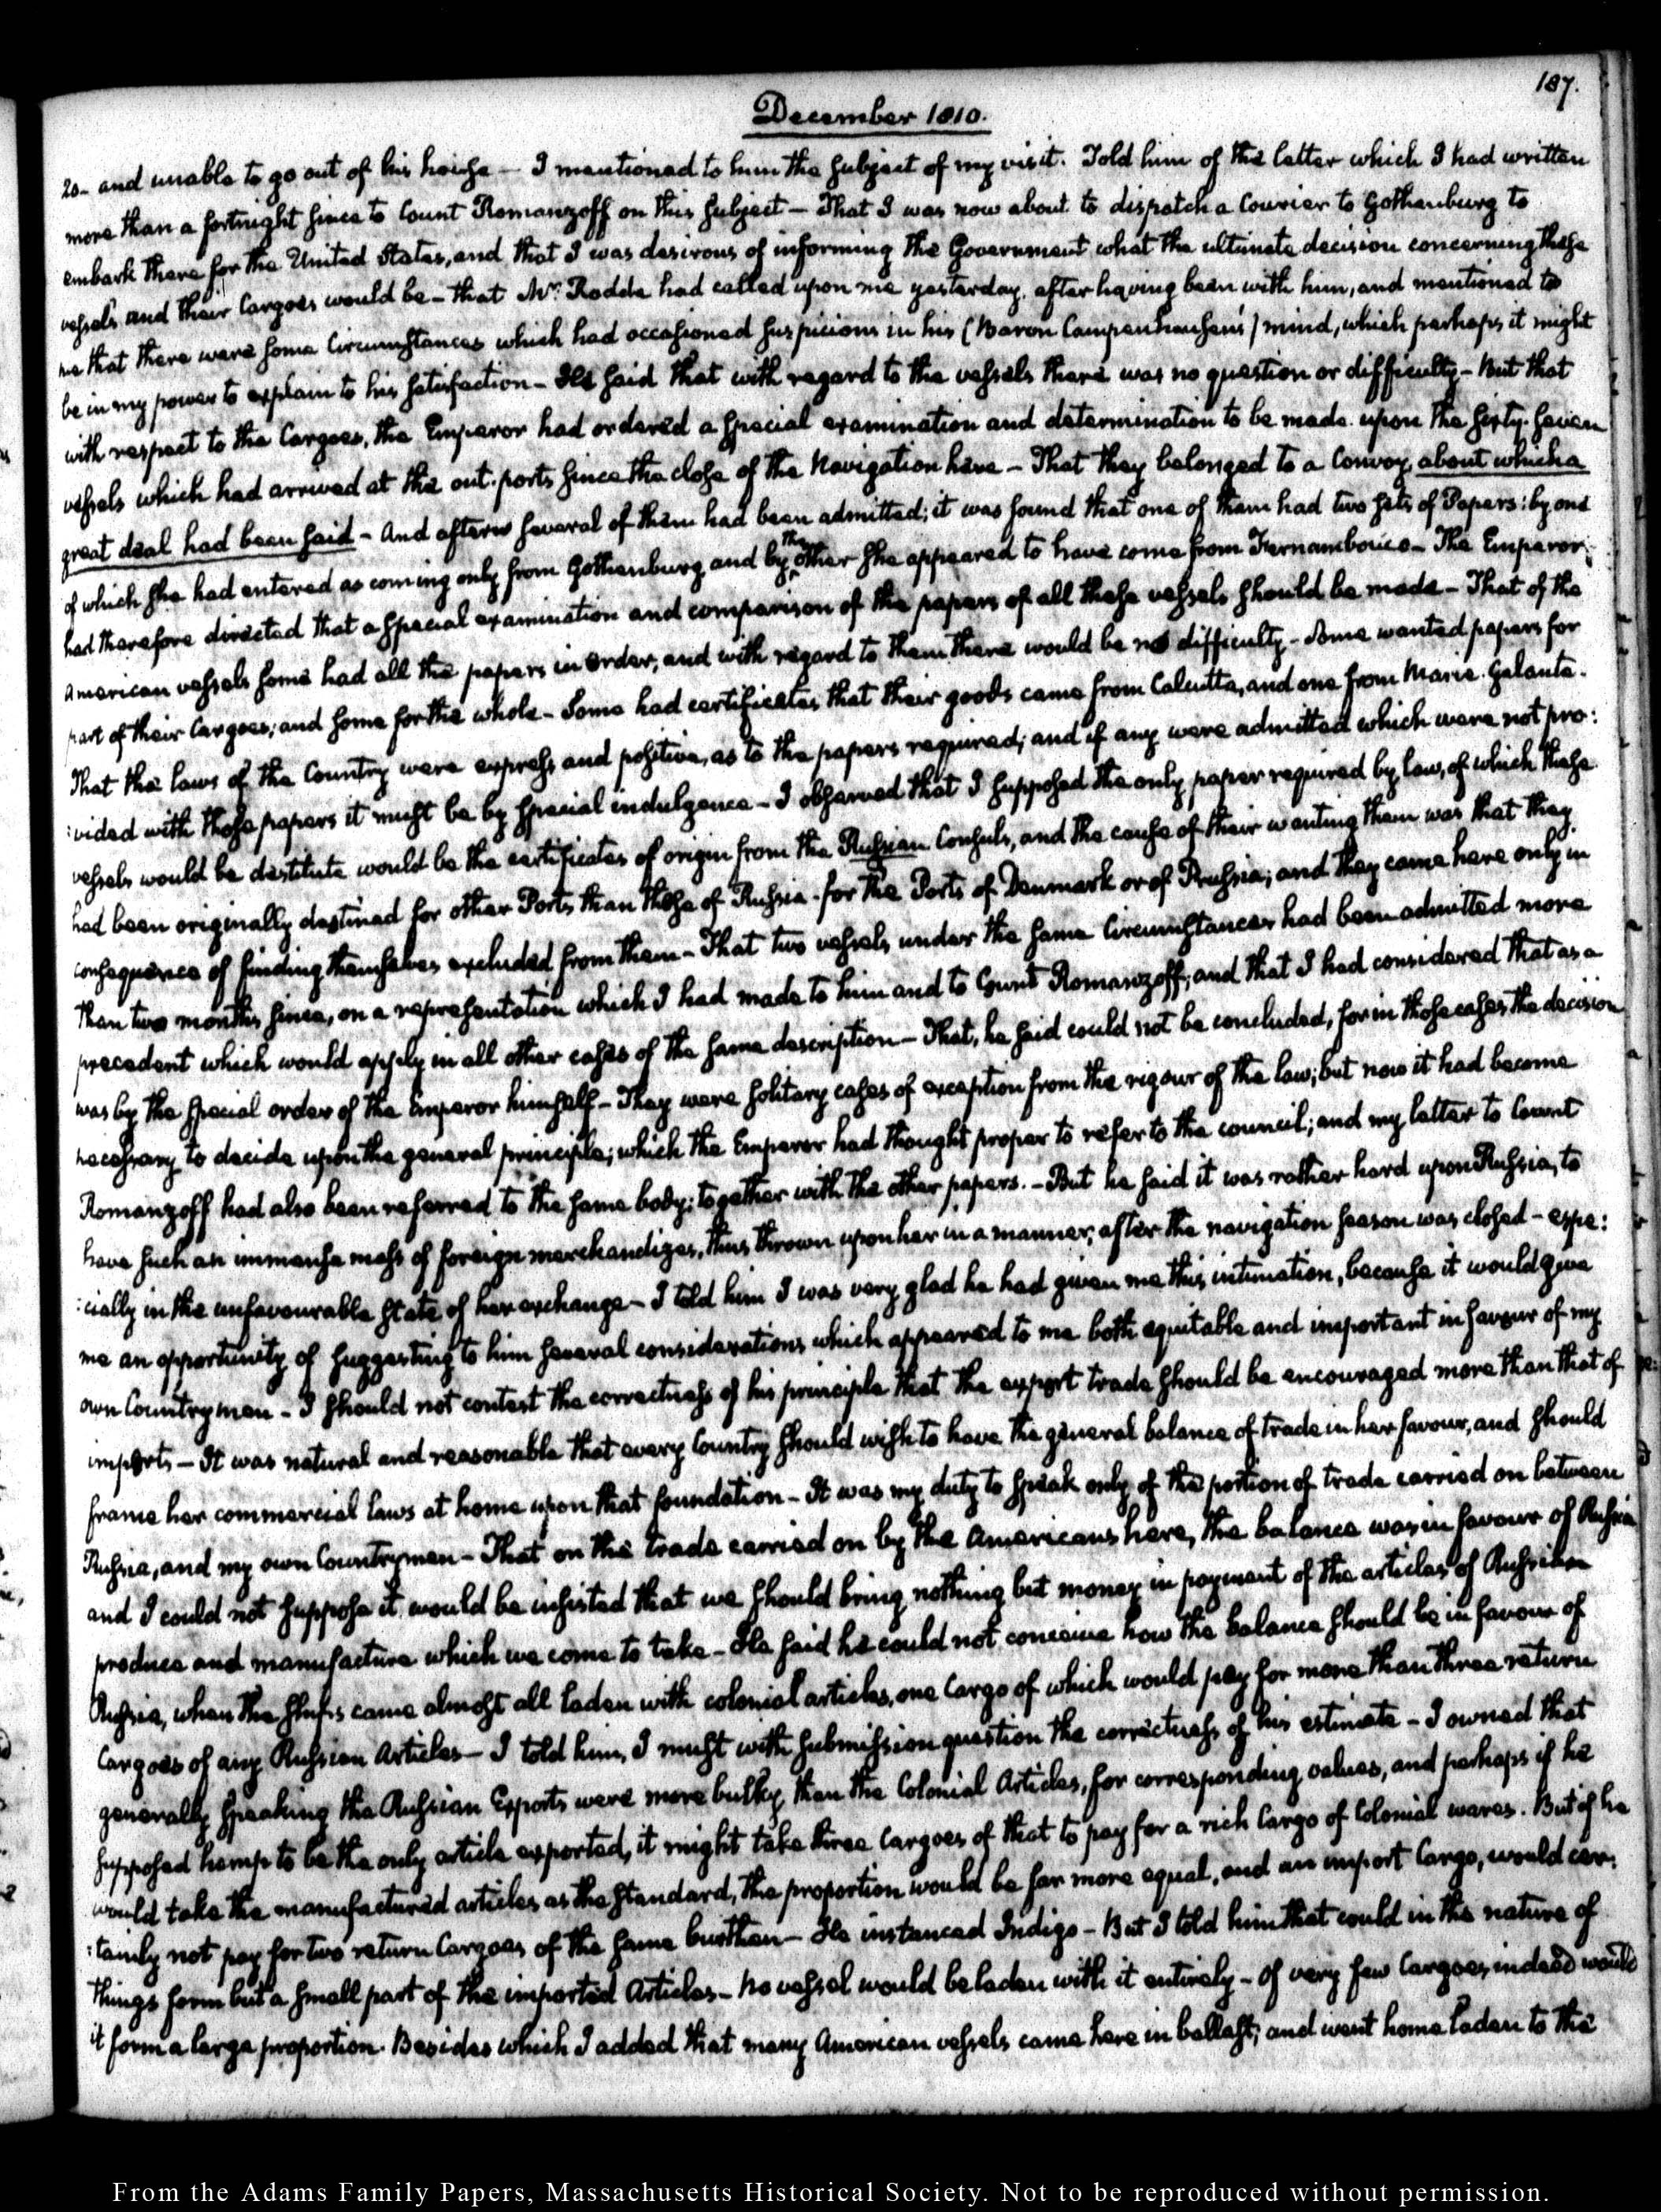 187.
December 1810.
20- and unable to go out of his house — I mentioned to him the subject of my visit. Told him of the letter which I had written
more than a fortnight since to Count Romanzoff on this subject — That I was now about to dispatch a Courier to Gothenburg to
embark there for the United States, and that I was desirous of informing the Government what the ultimate decision concerning these
vessels and their Cargoes would be - that Mr. Rodde had called upon me yesterday, after having been with him, and mentioned to
me that there were some Circumstances which had occasioned suspicions in his (Baron Campenhausen's) mind, which perhaps it might
be in my power to explain to his satisfaction - He said that with regard to the vessels there was no question or difficulty - But that
with respect to the Cargoes, the Emperor had ordered a special examination and determination to be made upon the sixty-seven
vessels which had arrived at the out-ports since the close of the Navigation here - That they belonged to a Convoy, about which a
great deal had been said - And after several of them had been admitted; it was found that one of them had two sets of Papers: by one
of which she had entered as coming only from Gothenburg, and by the other she appeared to have come from Fernambouco - The Emperor
had therefore directed that a special examination and comparison of the papers of all these vessels should be made - That of the
American vessels some had all the papers in order, and with regard to them there would be no difficulty - Some wanted papers for
part of their Cargoes; and some for the whole - Some had certificates that their goods came from Calcutta, and one from Marie-Galante.
That the laws of the Country were express and positive, as to the papers required; and if any were admitted which were not pro:
:vided with those papers it must be by special indulgence - I observed that I supposed the only paper required by law, of which these
vessels would be destitute would be the certificates of origin from the Russian Consuls, and the cause of their wanting them was that they
had been originally destined for other Ports than those of Russia - for the Ports of Denmark or of Prussia; and they came here only in
consequence of finding themselves excluded from them - That two vessels under the same Circumstances had been admitted more
than two months since, on a representation which I had made to him and to Count Romanzoff; and that I had considered that as a
precedent which would apply in all other cases of the same description - That, he said could not be concluded, for in those cases the decision
was by the special order of the Emperor himself - They were solitary cases of exception from the rigour of the law; but now it had become
necessary to decide upon the general principle; which the Emperor had thought proper to refer to the council; and my letter to Count
Romanzoff had also been referred to the same body; together with the other papers. - But he said it was rather hard upon Russia, to
have such an immense mass of foreign merchandizes, thus thrown upon her in a manner, after the navigation season was closed - espe:
:cially in the unfavourable state of her exchange - I told him I was very glad he had given me this intimation, because it would give
me an opportunity of suggesting to him several considerations which appeared to me both equitable and important in favour of my
own Countrymen - I should not contest the correctness of his principle that the export trade should be encouraged more than that of
imports — It was natural and reasonable that every Country should wish to have the general balance of trade in her favour, and should
frame her commercial laws at home upon that foundation - It was my duty to speak only of the portion of trade carried on between
Russia, and my own Countrymen - That on the trade carried on by the Americans here, the balance was in favour of Russia
and I could not suppose it would be insisted that we should bring nothing but money in payment of the articles of Russian
produce and manufacture which we come to take - He said he could not conceive how the balance should be in favour of
Russia, when the ships came almost all laden with colonial articles, one Cargo of which would pay for more than three return
Cargoes of any Russian Articles — I told him, I must with submission question the correctness of his estimate - I owned that
generally speaking the Russian Exports were more bulky than the Colonial Articles, for corresponding values, and perhaps if he
supposed hemp to be the only article exported, it might take three Cargoes of that to pay for a rich Cargo of Colonial wares. But if he
would take the manufactured articles as the standard, the proportion would be far more equal, and an import Cargo, would cer:
:tainly not pay for two return Cargoes of the same burthen — He instanced Indigo - But I told him that could in the nature of
things form but a small part of the imported Articles - no vessel would be laden with it entirely - of very few Cargoes, indeed would
it form a large proportion. Besides which I added that many American vessels came here in ballast; and went home laden to the
From the Adams Family Papers, Massachusetts Historical Society. Not to be reproduced without permission.